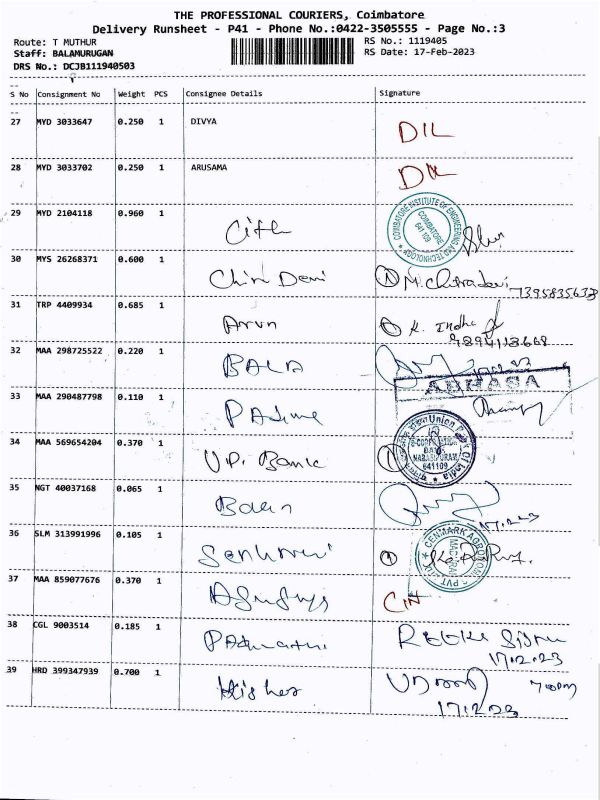 THE PROFESSIONAL COURIERS, Coimbatore
Delivery Runsheet - P41 - Phone No.:0422-3505555 - Page No.:3
Route: T MUTHUR RS No.: 1119405
Staff: BALAMURUGAN RS Date: 17-Feb-2023
DRS No.: DCJB111940503
S No Consignment No Weight PCS Consignee Details Signature
27 MYD 3033647 0.250 1 DIVYA DIL
28 MYD 3033702 0.250 1 ARUSAMA DIL
29 MYD 2104118 0.960 1
COIMBATORE INSTITUTE OF ENGINEERING AND TECHNOLOGY
COIMBATORE
641 109
30 MYS 26268371 0.600 1 M. Chitradevi
7395835638
31 TRP 4409934 0.685 1 Arun K. Indhu
9894113668
32 MAA 298725522 0.220 1 BALA
ABHASA
33 MAA 290487798 0.110 1
34 MAA 569654204 0.370 1 U.P. Bank
Union Bank of India
641109
35 NGT 40037168 0.065 1
17.2.23
36 SLM 313991996 0.105 1
CENMARK AGROTECH
PVT. LTD
37 MAA 859077676 0.370 1
38 CGL 9003514 0.185 1
17.2.23
39 HRD 399347939 0.700 1 Kisher
7:00pm
17.2.23